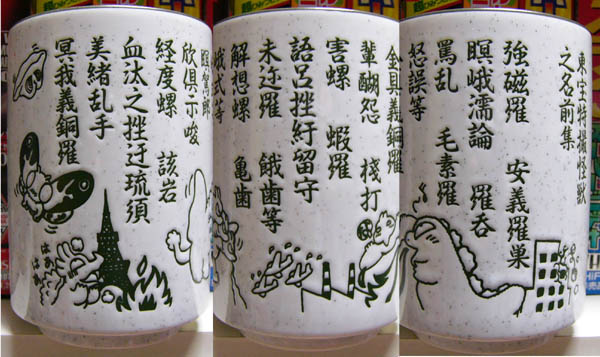 東宝特撮怪獣
之名前集
強磁羅 安義羅巣
瞑峨濡論 羅呑
罵乱 毛素羅
怒誤等
金具義銅羅
輩醐怨 桟打
害螺 蝦羅
語呂挫紆留守
未迩羅 餓歯等
解想螺 亀歯
式等
欣倶示唆
経度螺 該岩
血汰之挫迂琉須
美緒乱手
冥我義銅羅
はあ
はあ